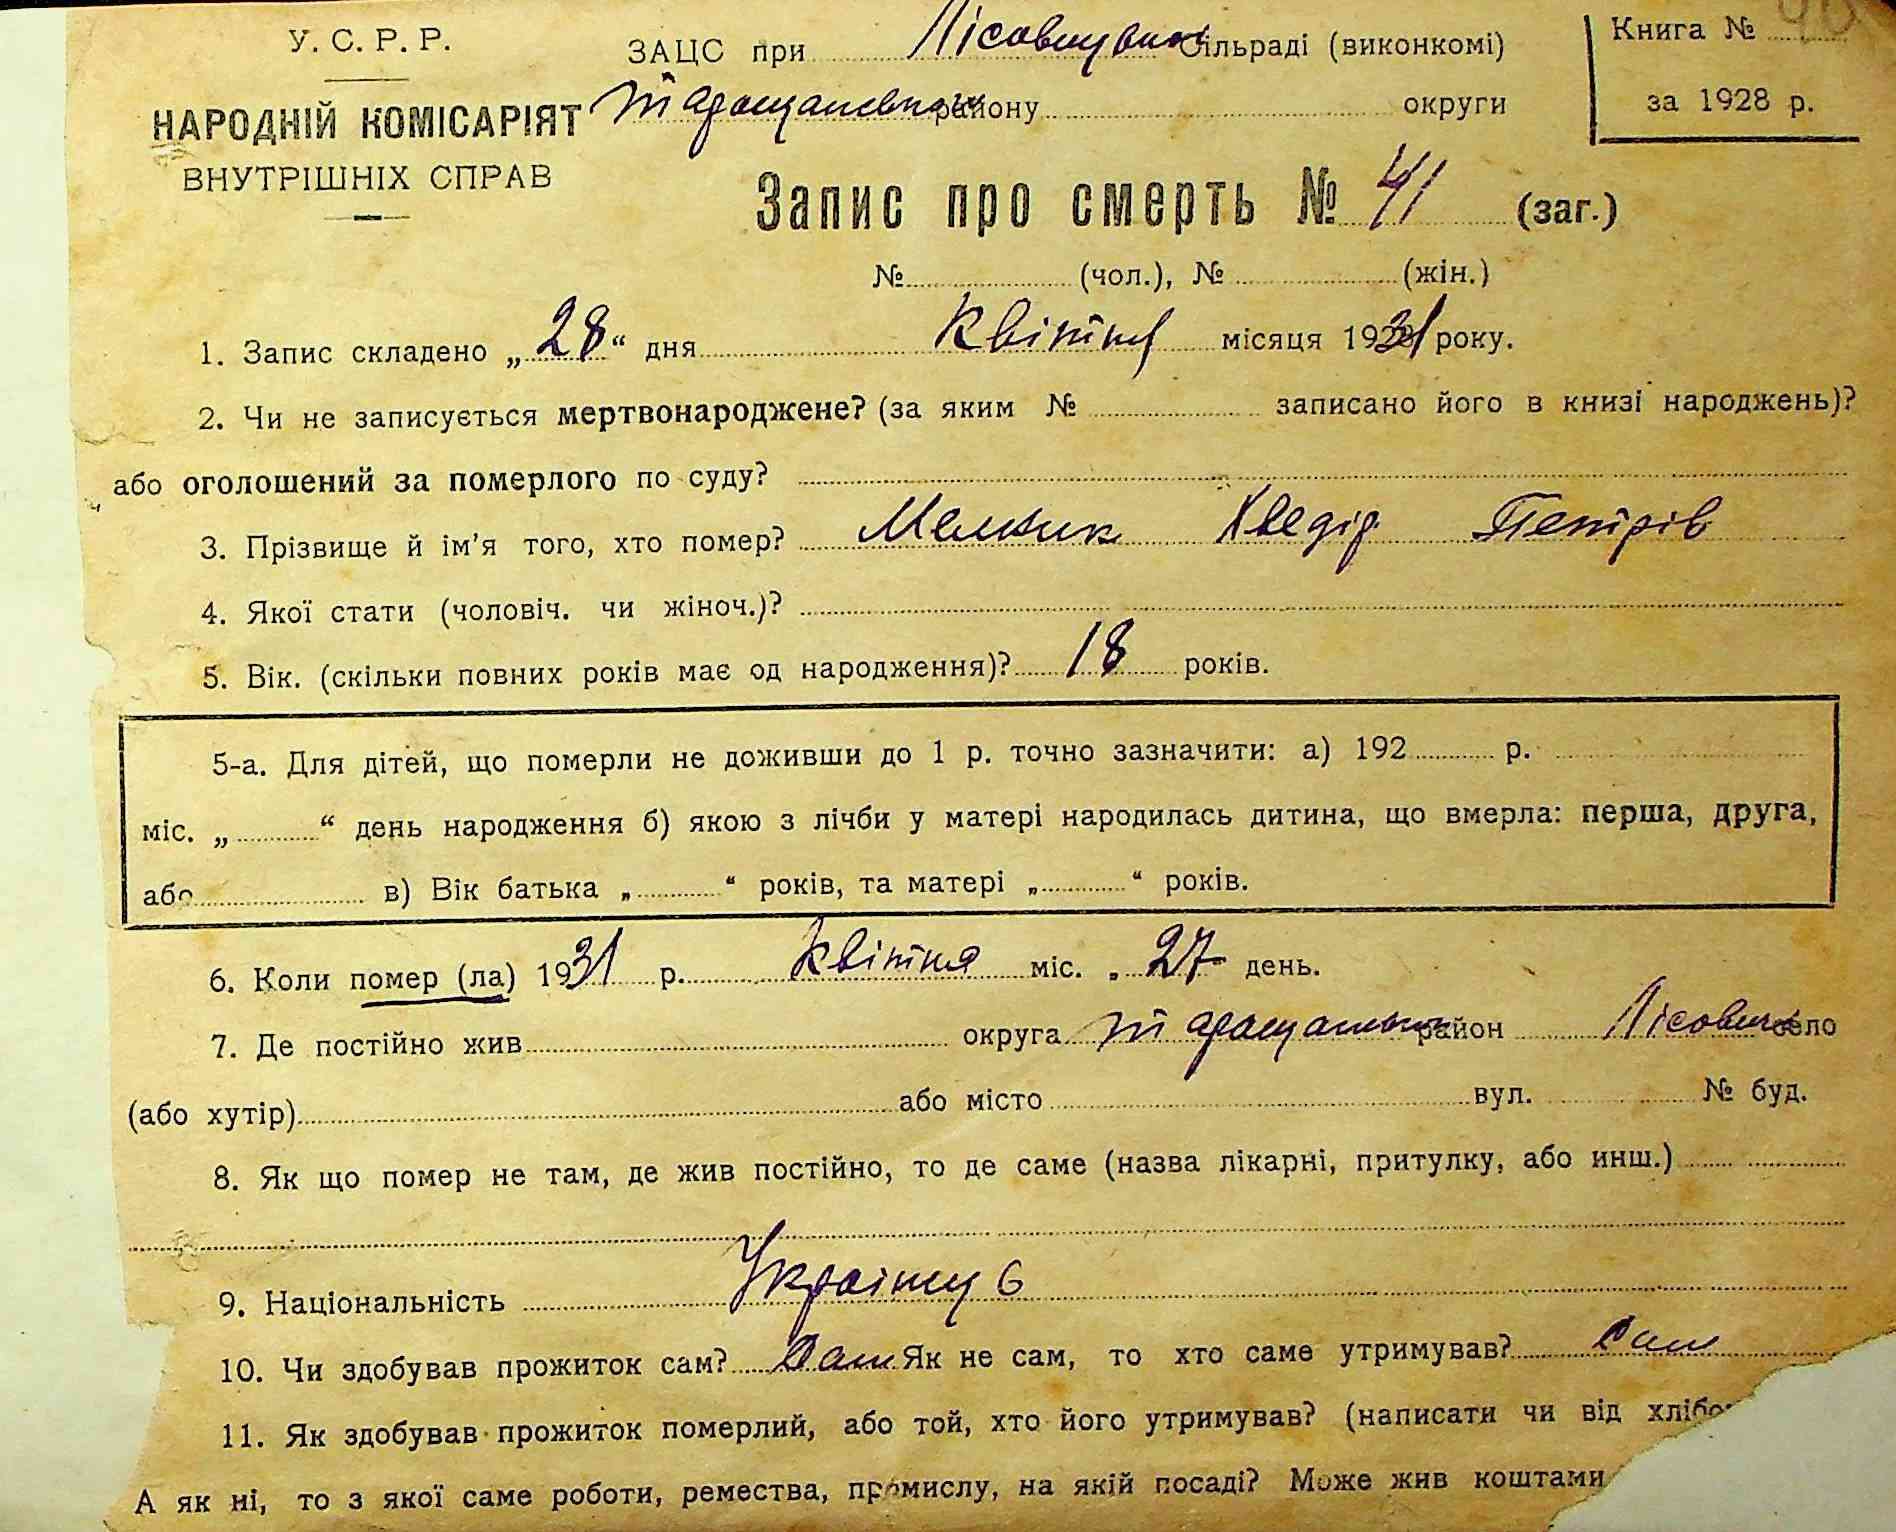 У. С. Р. Р.
НАРОДНІЙ КОМІСАРІЯТ
ВНУТРІШНІХ СПРАВ
ЗАЦС при Сільраді (виконкомі)
району округи
Книга №
за 1928 р.
Запис про смерть № 41 (заг.)
№ (чол.), № (жін.)
1. Запис складено „28“ дня Квітня місяця 1931 року.
2. Чи не записується мертвонароджене? (за яким № записано його в книзі народжень)?
або оголошений за померлого по суду?
3. Прізвище й ім’я того, хто помер? Мельник Хведір Петрів
4. Якої стати (чоловіч. чи жіноч.)?
5. Вік. (скільки повних років має од народження)? 18 років.
5-а. Для дітей, що померли не доживши до 1 р. точно зазначити: а) 192 р.
міс. „ “ день народження б) якою з лічби у матері народилась дитина, що вмерла: перша, друга,
або в) Вік батька „ “ років, та матері „ “ років.
6. Коли помер (ла) 1931 р. Квітня міс. „27 день.
7. Де постійно жив округа район Лісовичі село
(або хутір) або місто вул. № буд.
8. Як що помер не там, де жив постійно, то де саме (назва лікарні, притулку, або инш.)
9. Національність
10. Чи здобував прожиток сам? Сам Як не сам, то хто саме утримував? Сам
11. Як здобував прожиток померлий, або той, хто його утримував? (написати чи від
А як ні, то з якої саме роботи, ремества, промислу, на якій посаді? Може жив коштами